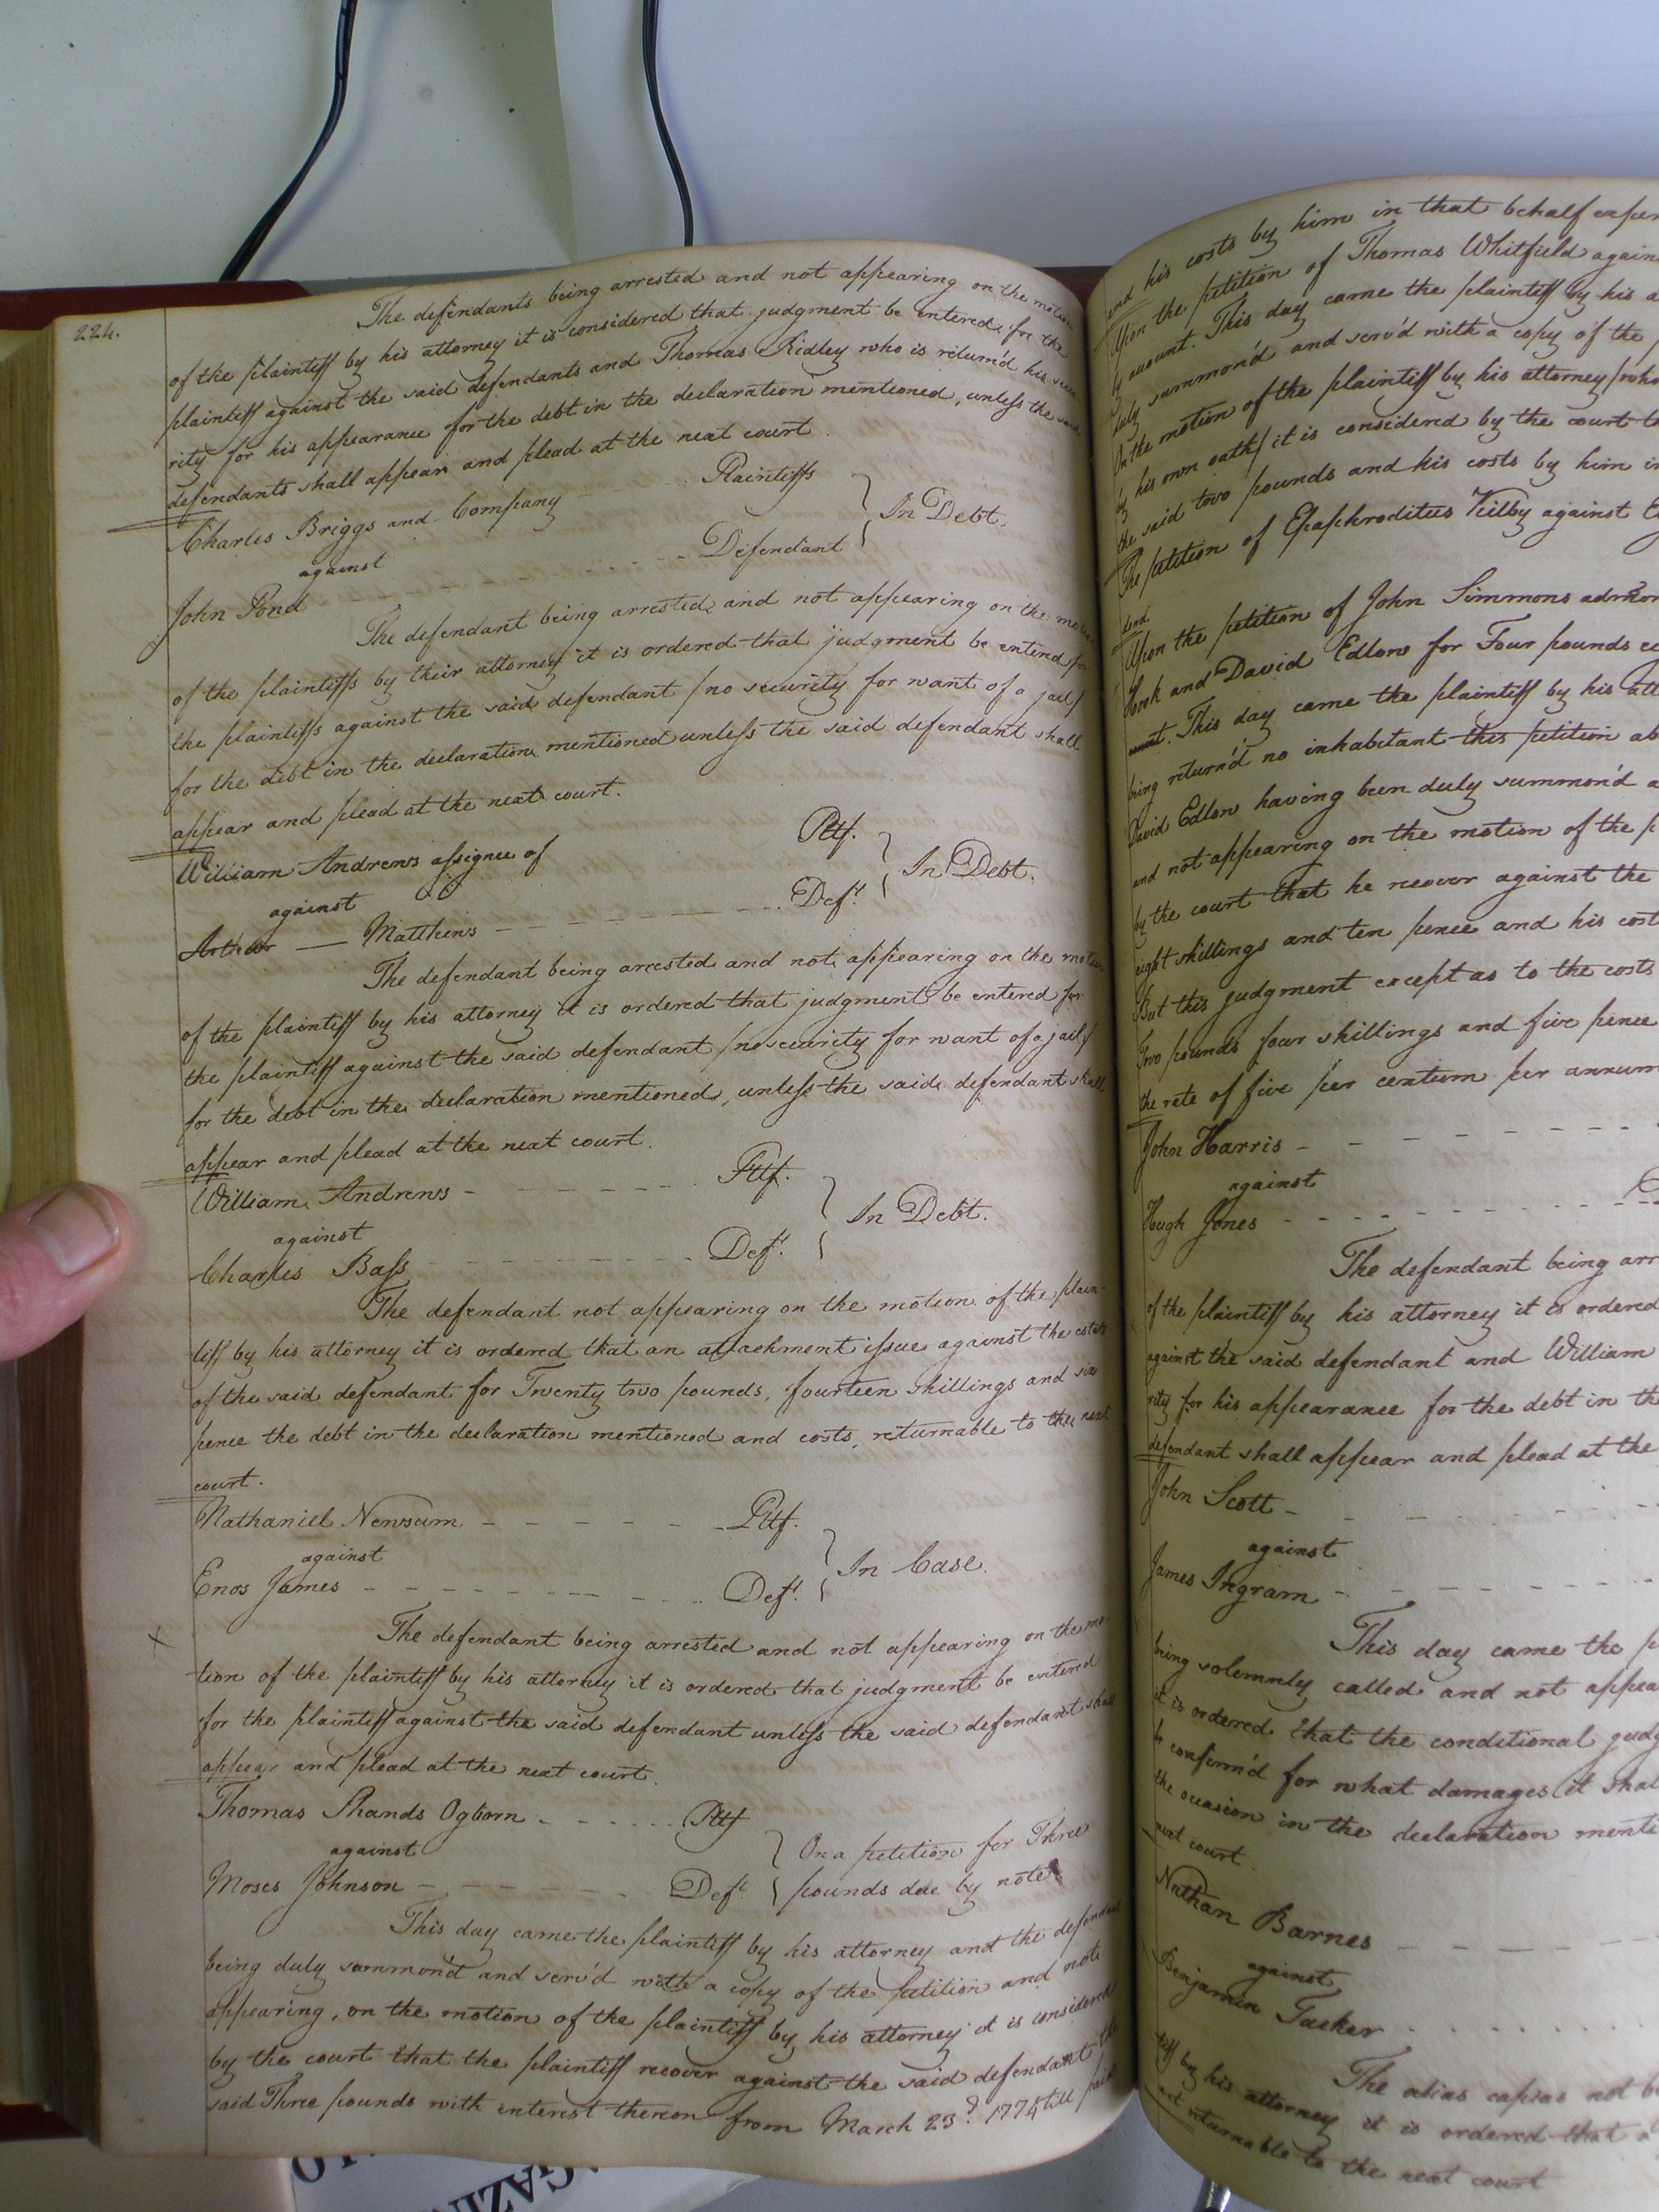 224.
The defendants being arrested and not appearing on the motion
of the plaintiff by his attorney it is considered that judgment be entered for the
plaintiff against the said defendants and Thomas Ridley who is return'd his secu
rity for his appearance for the debt in the declaration mentioned, unless the said
defendants shall appear and plead at the next court.
Charles Briggs and Company Plaintiffs
against In Debt.
John Pond Defendant
The defendant being arrested and not appearing on the motion
of the plaintiffs by their attorney it is ordered that judgment be entered for
the plaintiffs against the said defendant /no security for want of a jail/
for the debt in the declaration mentioned unless the said defendant shall
appear and plead at the next court.
William Andrews assignee of Pltf.
against In Debt.
Arthur — Matthews Deft.
The defendant being arrested and not appearing on the motion
of the plaintiff by his attorney it is ordered that judgment be entered for
the plaintiff against the said defendant /no security for want of a jail/
for the debt in the declaration mentioned, unless the said defendant shall
appear and plead at the next court.
William Andrews Pltf.
against In Debt.
Charles Bass Deft.
The defendant not appearing on the motion of the plain
tiff by his attorney it is ordered that an attachment issue against the estate
of the said defendant for Twenty two pounds, fourteen shillings and six
pence the debt in the declaration mentioned and costs, returnable to the next
court.
Nathaniel Newsum Pltf.
against In Case.
Enos James Deft.
The defendant being arrested and not appearing on the mo
tion of the plaintiff by his attorney it is ordered that judgment be entered
for the plaintiff against the said defendant unless the said defendant shall
appear and plead at the next court.
Thomas Shands Ogborn Pltf
against On a petition for Three
Moses Johnson Deft pounds due by note
This day came the plaintiff by his attorney and the defendant
being duly summon'd and serv'd with a copy of the petition and not
appearing, on the motion of the plaintiff by his attorney it is considered
by the court that the plaintiff recover against the said defendant the
said Three pounds with interest thereon from March 23d. 1775 till paid
and his costs by him in that behalf
Upon the petition of Thomas Whitfield
by account. This day came the plaintiff by his
duly summon'd and serv'd with a copy of the
On the motion of the plaintiff by his attorney /who
by his own oath/ it is considered by the court
the said two pounds and his costs by him in
The petition of Epaphroditus Kilby against
Upon the petition of John Simmons
Hook and David Edlow for Four pounds
ment. This day came the plaintiff by his
being return'd no inhabitant this petition
David Edlow having been duly summon'd
and not appearing on the motion of the
by the court that he recover against the
eight shillings and ten pence and his
But this judgment except as to the costs
Two pounds four shillings and five pence
the rate of five per centum per annum
John Harris
against
Hugh Jones
The defendant being
of the plaintiff by his attorney it is ordered
against the said defendant and William
rity for his appearance for the debt in the
defendant shall appear and plead at the
John Scott
against
James Ingram
This day came the
being solemnly called and not
it is ordered that the conditional
be confirm'd for what damages it
the occasion in the declaration
next court
Nathan Barnes
against
Benjamin Tucker
The alias capias not
tiff by his attorney it is ordered that
returnable to the next court